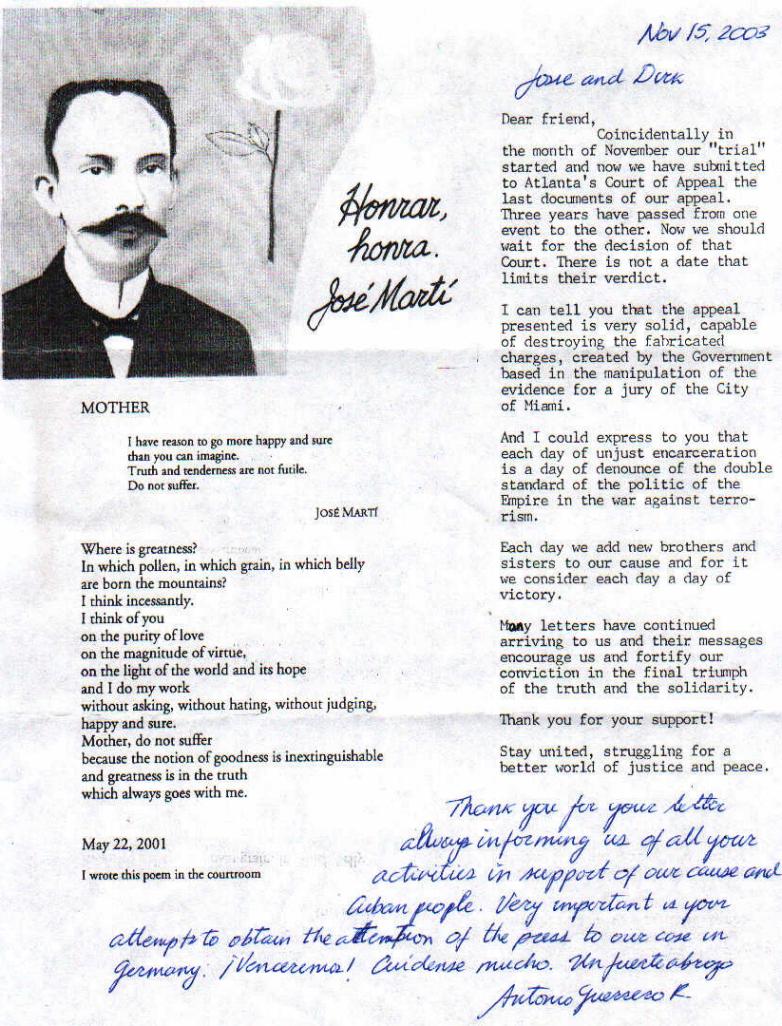 Nov 15, 2003
Josie and Dirk
Honrar,
honra.
José Martí
MOTHER
I have reason to go more happy and sure
than you can imagine.
Truth and tenderness are not futile.
Do not suffer.
JOSÉ MARTÍ
Where is greatness?
In which pollen, in which grain, in which belly
are born the mountains?
I think incessantly.
I think of you
on the purity of love
on the magnitude of virtue,
on the light of the world and its hope
and I do my work
without asking, without hating, without judging,
happy and sure.
Mother, do not suffer
because the notion of goodness is inextinguishable
and greatness is in the truth
which always goes with me.
May 22, 2001
I wrote this poem in the courtroom
Dear friend,
Coincidentally in
the month of November our "trial"
started and now we have submitted
to Atlanta's Court of Appeal the
last documents of our appeal.
Three years have passed from one
event to the other. Now we should
wait for the decision of that
Court. There is not a date that
limits their verdict.
I can tell you that the appeal
presented is very solid, capable
of destroying the fabricated
charges, created by the Government
based in the manipulation of the
evidence for a jury of the City
of Miami.
And I could express to you that
each day of unjust encarceration
is a day of denounce of the double
standard of the politic of the
Empire in the war against terro-
rism.
Each day we add new brothers and
sisters to our cause and for it
we consider each day a day of
victory.
Many letters have continued
arriving to us and their messages
encourage us and fortify our
conviction in the final triumph
of the truth and the solidarity.
Thank you for your support!
Stay united, struggling for a
better world of justice and peace.
Thank you for your letter
always informing us of all your
activities in support of our cause and
Cuban people. Very important is your
attempts to obtain the attention of the press to our case in
Germany. ¡Venceremos! Cuidense mucho. Un fuerte abrazo
Antonio Guerrero R.